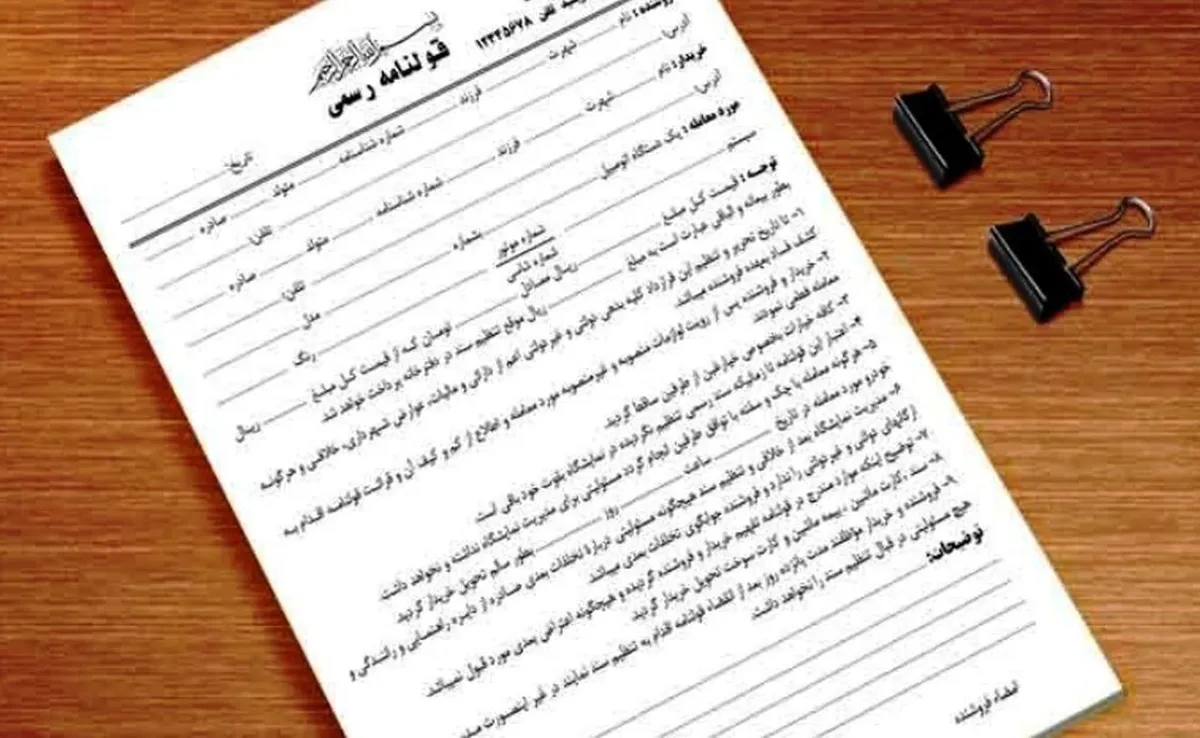 بسم الله الرحمن الرحیم
قولنامه رسمی
تلفن ۱۲۳۴۵۶۷۸
تاریخ:
فروشنده: نام شهرت فرزند شماره شناسنامه متولد صادره
آدرس: تلفن
خریدار: نام شهرت فرزند شماره شناسنامه متولد صادره
آدرس: تلفن
مورد معامله: یک دستگاه اتومبیل بشماره مدل
سیستم شماره موتور شماره شاسی رنگ
توجـه: قیمت کـل مبلـغ ریـال معـادل تومـان کـه از قیمـت کـل مبلـغ ریـال
بطور بیعانه و الباقی عبارت است به مبلغ ریال موقع تنظیم سند در دفترخانه پرداخت خواهد شد.
۱- تا تاریخ تحریر و تنظیم این قرارداد کلیه بدهی دولتی و غیردولتی اعم از دارائی و مالیات، عوارض شهرداری، خلافی و هرگونه
کشف فساد بعهده فروشنده میباشد.
۲- خریدار و فروشنده پس از رویت لوازمات منصوبه و غیرمنصوبه مورد معامله و اطلاع از کم و کیف آن و قرائت قولنامه اقـدام بـه
معامله قطعی نمودند.
۳- کافه خیارات بخصوص خیارغبن از طرفین ساقط گردید.
۴- اعتبار این قولنامه تا زمانیکه سند رسمی تنظیم نگردیده در نمایشگاه بقوت خود باقی است
۵- هرگونه معامله با چک و سفته با توافق طرفین انجام گردد مسئولیتی برای مدیریت نمایشگاه نداشته و نخواهد داشت
خودرو مورد معامله در تاریخ ساعت روز بطور سالم تحویل خریدار گردید.
۶- مدیریت نمایشگاه بعد از خلافی و تنظیم سند هیچگونه مسئولیتی درباره تخلفات بعدی صـادره از دایـره راهنمـایی و راننـدگی و
ارگانهای دولتی و غیردولتی را ندارد و فروشنده جوابگوی تخلفات بعدی میباشد
۷- توضیح اینکه موارد مندرج در قولنامه تفهیم خریدار و فروشنده گردیده و هیچگونه اعتراض بعدی مورد قبول نمیباشد.
۸- سند ، کارت ماشین ، بیمه ماشین و کارت سوخت تحویل خریدار گردید.
۹- فروشنده و خریدار موظفند مدت پانزده روز بعد از انقضاء قولنامه اقدام به تنظیم سند نمایند در غیر اینصورت
هیچ مسئولیتی در قبال تنظیم سند را نخواهد داشت.
توضیحات:
امضاء فروشنده